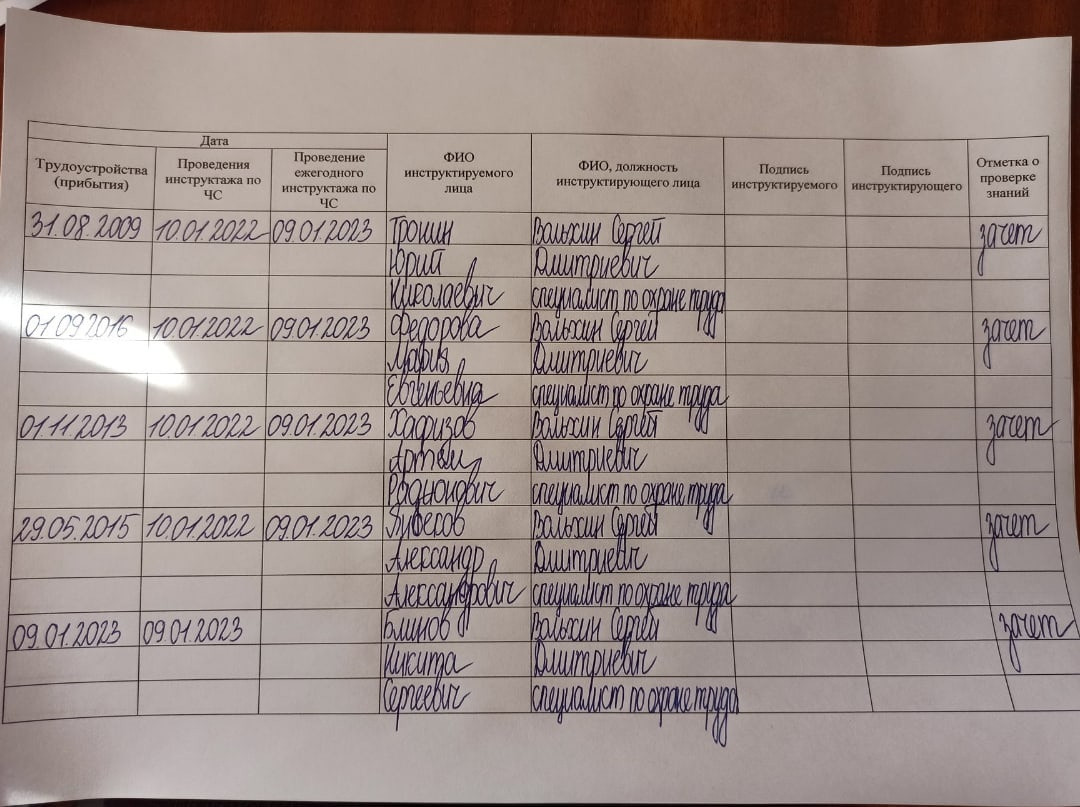 Дата
Трудоустройства (прибытия) Проведения инструктажа по ЧС Проведение ежегодного инструктажа по ЧС ФИО инструктируемого лица ФИО, должность инструктирующего лица Подпись инструктируемого Подпись инструктирующего Отметка о проверке знаний
31.08.2009 10.01.2022 09.01.2023 Тронин Вольхин Сергей зачет
Юрий Дмитриевич
Николаевич специалист по охране труда
01.09.2016 10.01.2022 09.01.2023 Федорова Вольхин Сергей зачет
Мария Дмитриевич
Евгеньевна специалист по охране труда
01.11.2013 10.01.2022 09.01.2023 Хафизов Вольхин Сергей зачет
Артем Дмитриевич
специалист по охране труда
29.05.2015 10.01.2022 09.01.2023 Вольхин Сергей зачет
Александр Дмитриевич
Александрович специалист по охране труда
09.01.2023 09.01.2023 Блинов Вольхин Сергей зачет
Никита Дмитриевич
Сергеевич специалист по охране труда